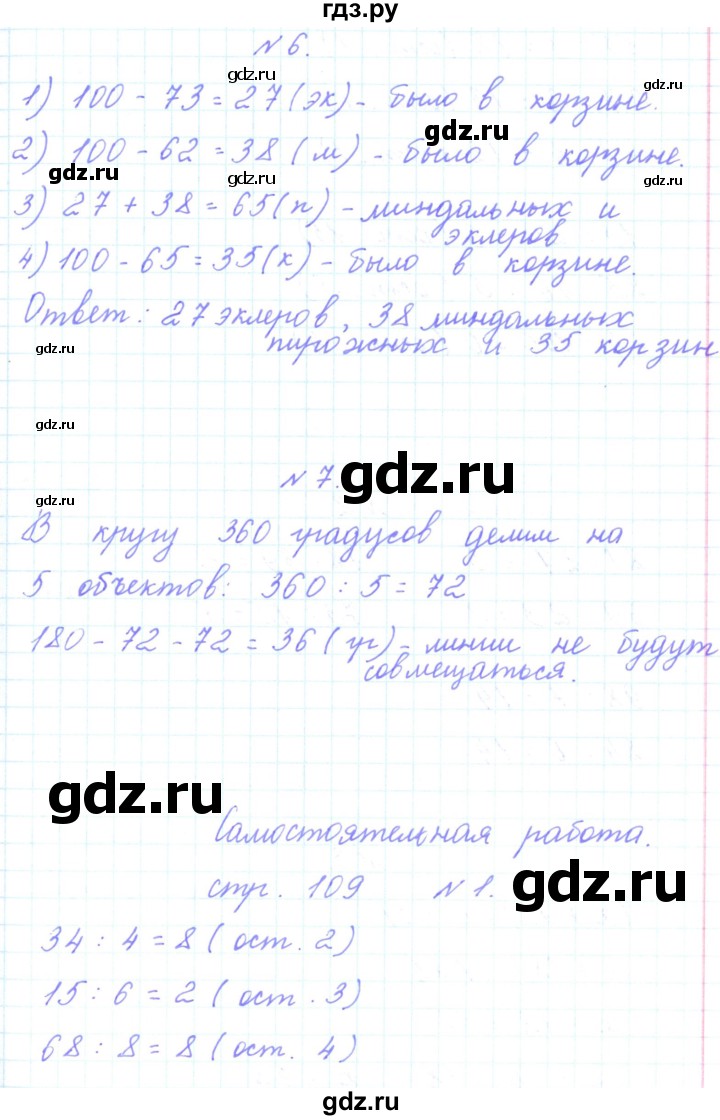 гдз.ру
№ 6.
gdz.ru
gdz.ru
1) 100 - 73 = 27 (эк) - было в корзине.
gdz.ru
2) 100 - 62 = 38 (м) - было в корзине.
gdz.ru
gdz.ru
gdz.ru
3) 27 + 38 = 65 (п) - миндальных и
эклеров
4) 100 - 65 = 35 (к) - было в корзине.
Ответ: 27 эклеров, 38 миндальных
пирожных и 35 корзин
gdz.ru
gdz.ru
№ 7.
gdz.ru
gdz.ru
В кругу 360 градусов делим на
5 объектов: 360 : 5 = 72
180 - 72 - 72 = 36 (уг) - линии не будут
совмещаться.
gdz.ru
Самостоятельная работа.
стр. 109 № 1.
gdz.ru
34 : 4 = 8 (ост. 2)
15 : 6 = 2 (ост. 3)
68 : 8 = 8 (ост. 4)
gdz.ru